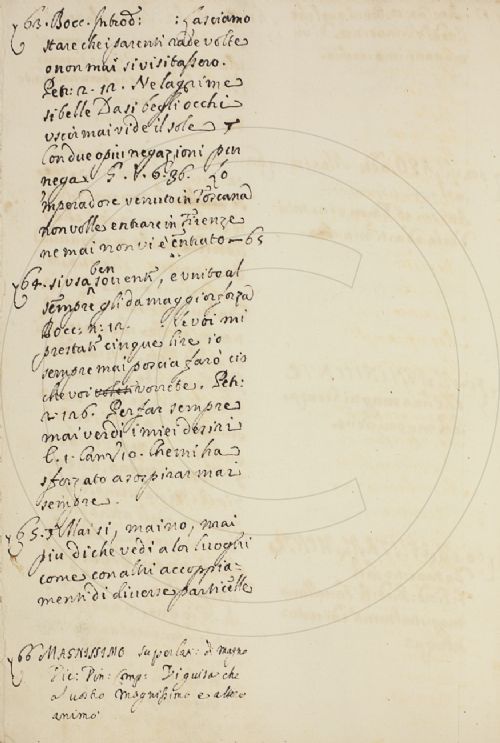 63. Bocc. Introd: : Lasciamo
stare che i parenti rade volte
o non mai si visitassero.
Petr: 2. 12. Ne lagrime
si belle Da si begli occhi
uscir mai vide il sole
Con due o piu negazioni pur
nega G. V. 6. 86. Lo
'mperadore venuto in Toscana
non volle entrare in Firenze
ne mai non vi e entrato — 65
64. si usa ben sovente, e unito al
sempre gli da maggior forza
Bocc: n: 12. se voi mi
prestate cinque lire io
sempre mai poscia farò ciò
che voi vorrete. Petr:
2 126. Per far sempre
mai verdi i miei desiri
C. 1. Canz. 10. Che mi ha
sforzato a sospirar mai
sempre.
65. Mai si, mai no, mai
piu di che vedi a lor luoghi
come con altri accoppia-
menti di diverse particelle
66 MAGNISSIMO superlat: di magno
Dic: Din: Comp: Di guisa che
al vostro magnissimo e altero
animo